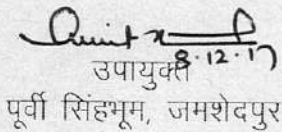 8.12.17
उपायुक्त
पूर्वी सिंहभूम, जमशेदपुर